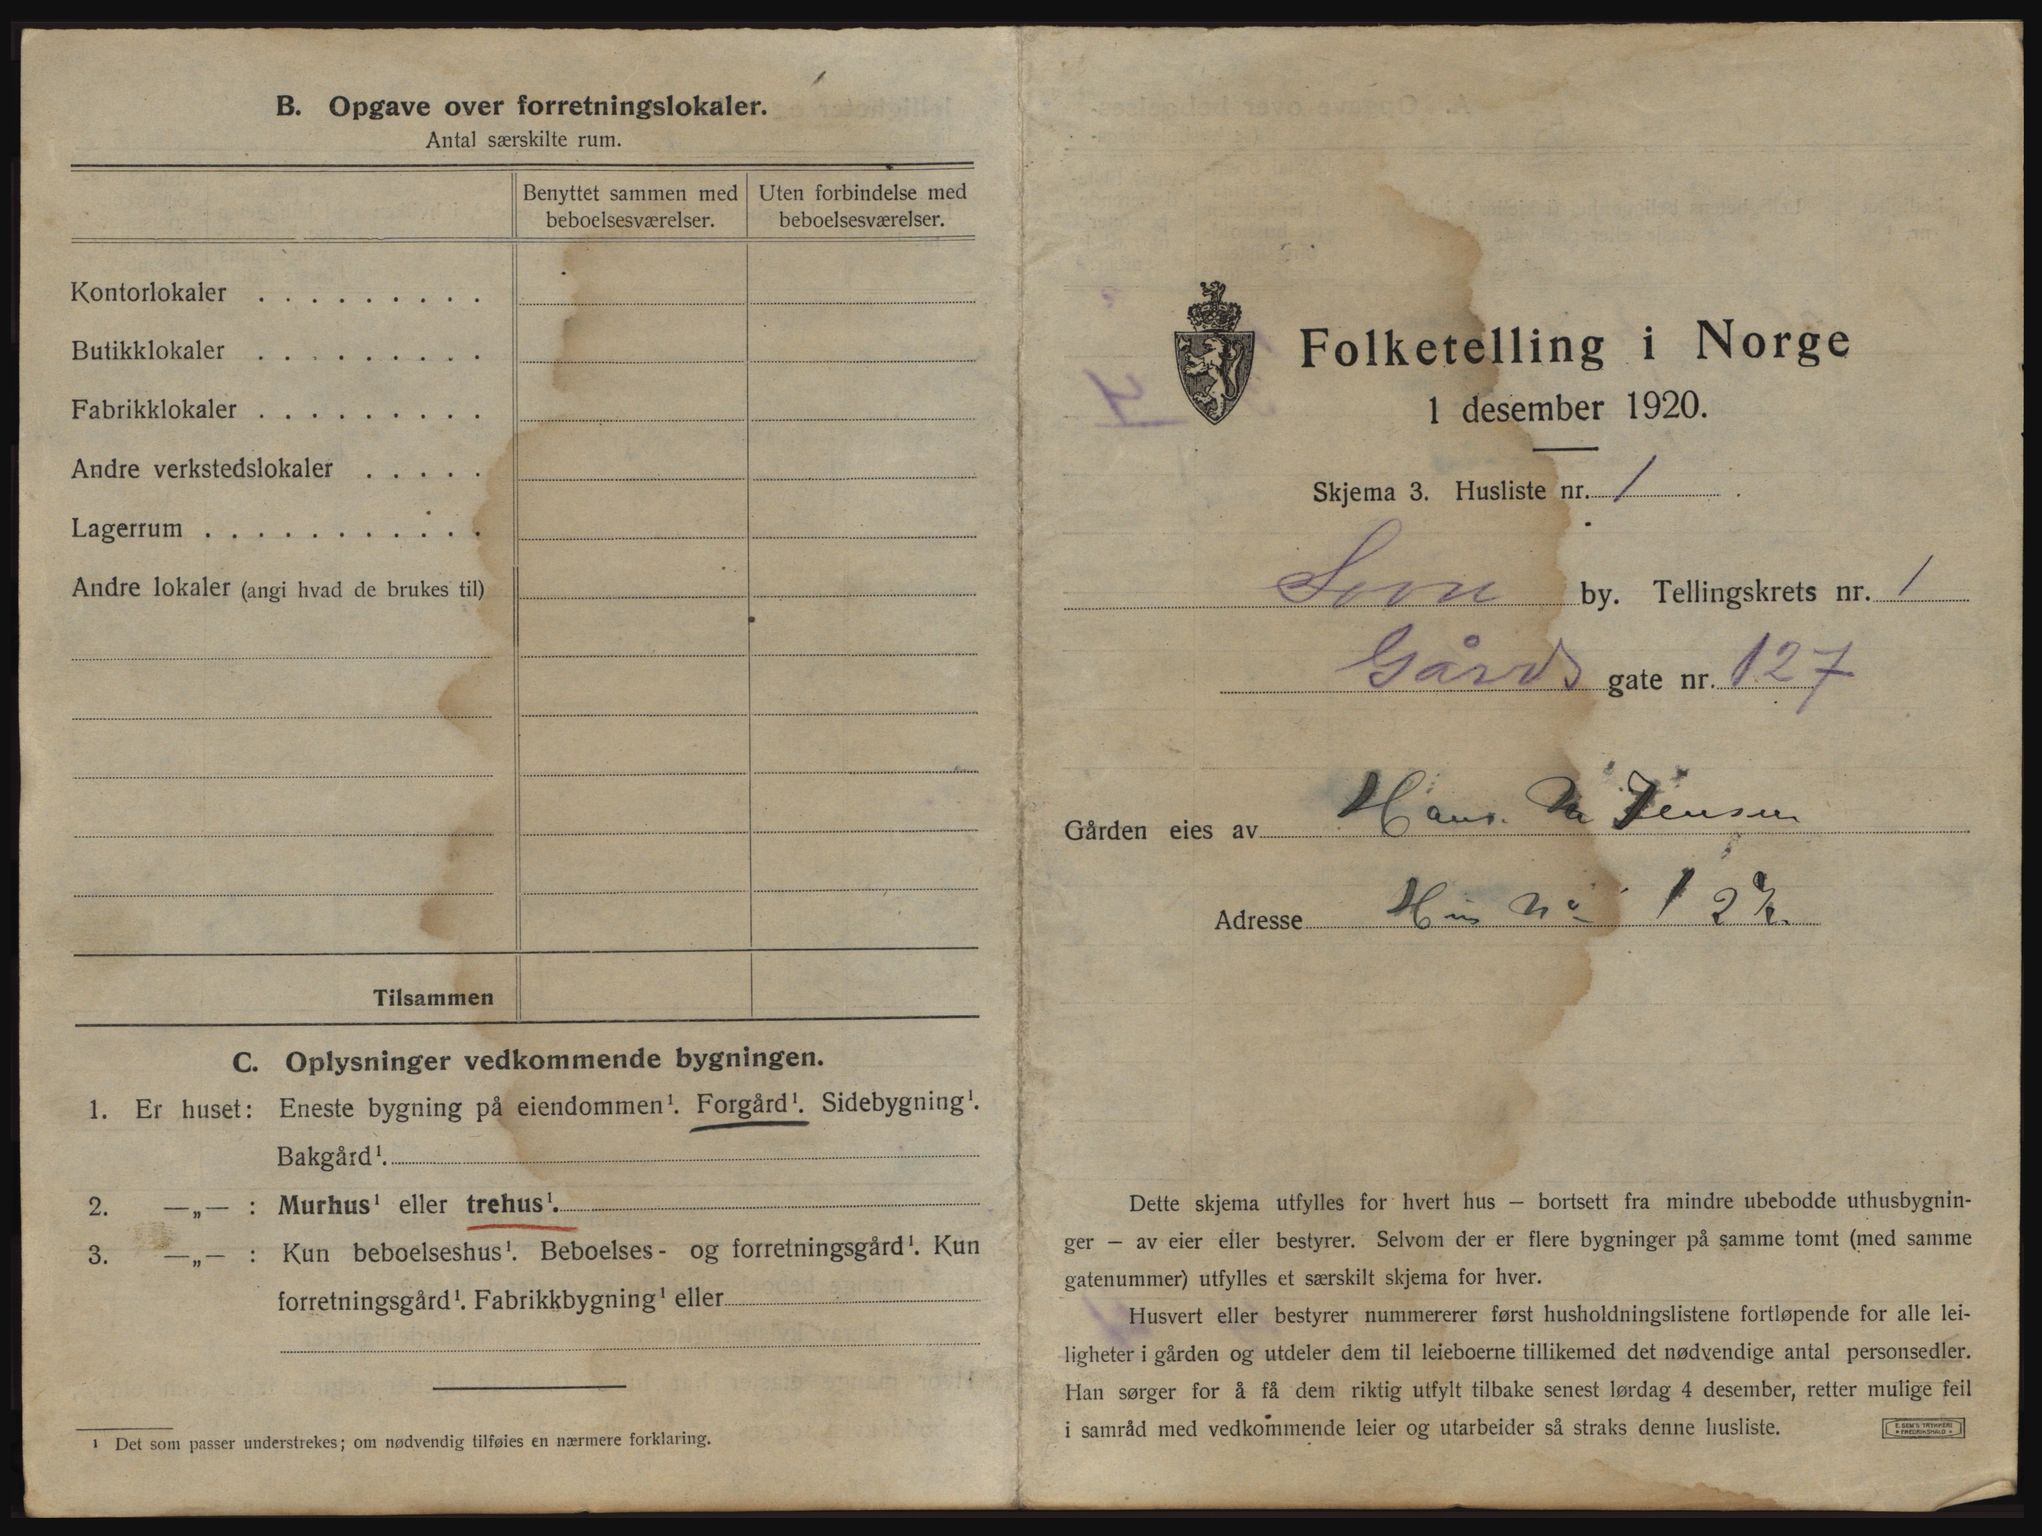 B. Opgave over forretningslokaler.
Antal særskilte rum.
Benyttet sammen med beboelsesværelser.
Uten forbindelse med beboelsesværelser.
Kontorlokaler . . . . . . . . .
Butikklokaler . . . . . . . . .
Fabrikklokaler . . . . . . . . .
Andre verkstedslokaler . . . . .
Lagerrum . . . . . . . . . . .
Andre lokaler (angi hvad de brukes til)
Tilsammen
C. Oplysninger vedkommende bygningen.
1. Er huset: Eneste bygning på eiendommen¹. Forgård¹. Sidebygning¹.
Bakgård¹.
2. —„— : Murhus¹ eller trehus¹.
3. —„— : Kun beboelseshus¹. Beboelses- og forretningsgård¹. Kun
forretningsgård¹. Fabrikkbygning¹ eller
¹ Det som passer understrekes; om nødvendig tilføies en nærmere forklaring.
Folketelling i Norge
1 desember 1920.
Skjema 3. Husliste nr. 1
by. Tellingskrets nr. 1
Gårds gate nr. 127
Gården eies av Hans Jensen
Adresse Hus No 127.
Dette skjema utfylles for hvert hus — bortsett fra mindre ubebodde uthusbygnin-
ger — av eier eller bestyrer. Selvom der er flere bygninger på samme tomt (med samme
gatenummer) utfylles et særskilt skjema for hver.
Husvert eller bestyrer nummererer først husholdningslistene fortløpende for alle lei-
ligheter i gården og utdeler dem til leieboerne tillikemed det nødvendige antal personsedler.
Han sørger for å få dem riktig utfylt tilbake senest lørdag 4 desember, retter mulige feil
i samråd med vedkommende leier og utarbeider så straks denne husliste.
E. SEM'S TRYKKERI
• FREDRIKSHALD •